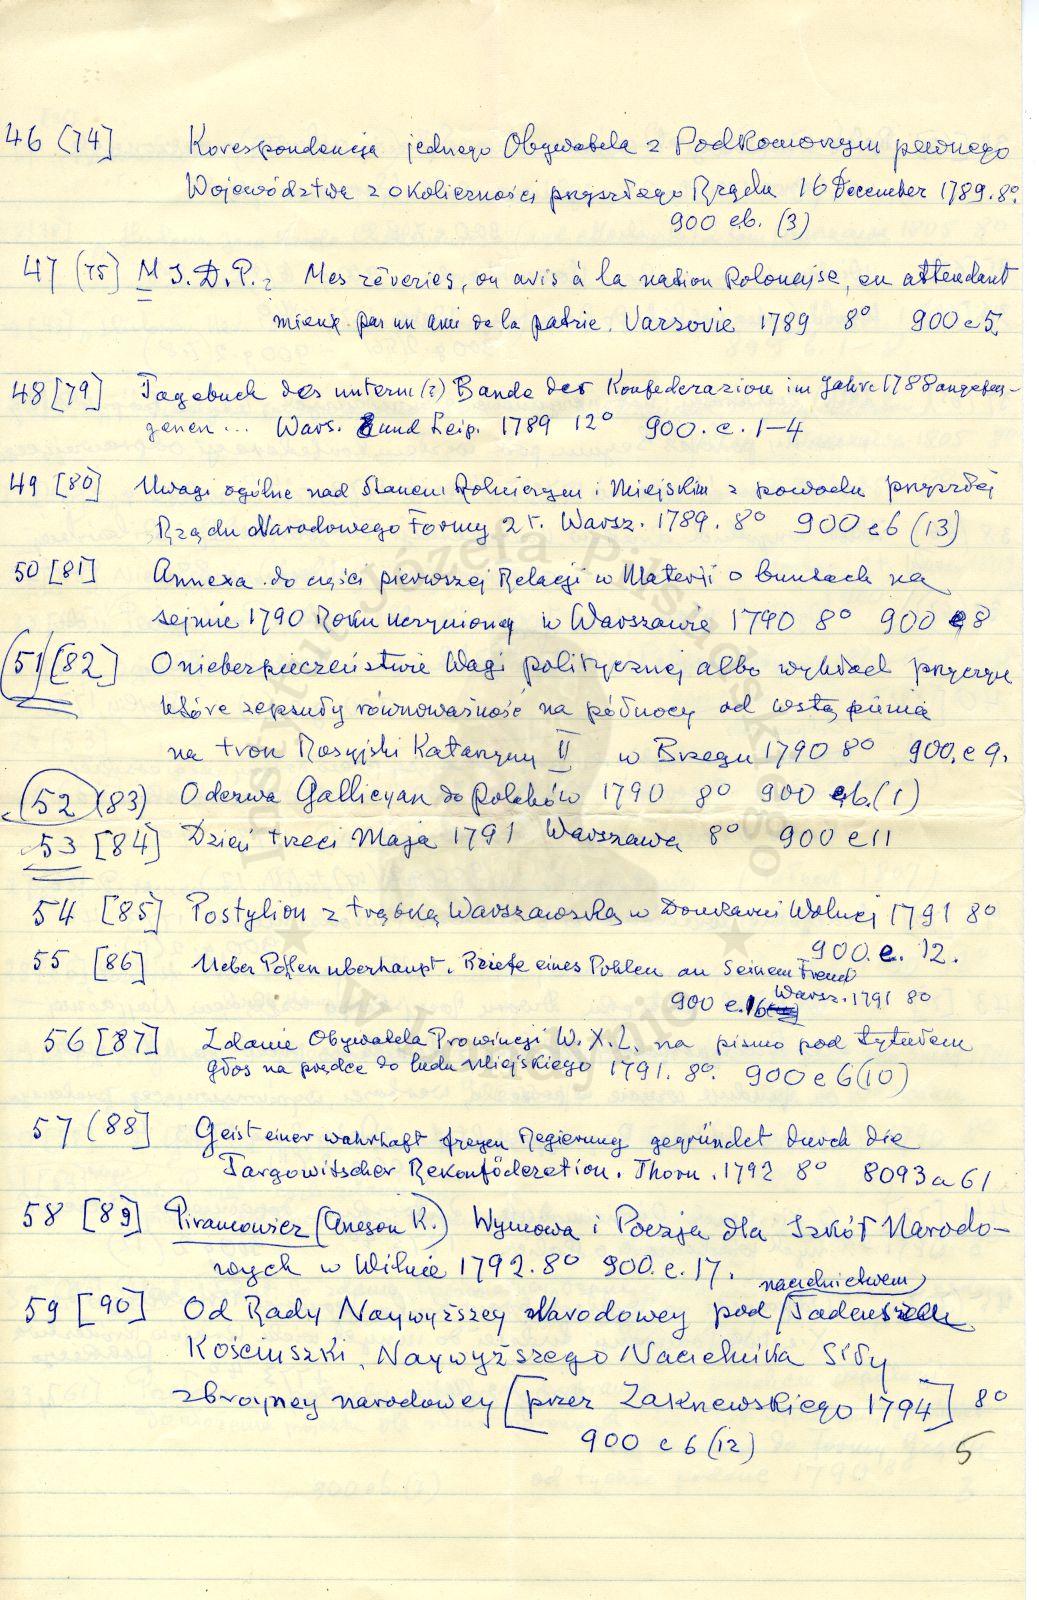 46 (74] Korespondencja jednego Obywatela z Podkomorzym pewnego
Województwa z okoliczności przyszłego Rządu 16 December 1789. 8°
900 eb. (3)
47 (75) M J.D.P.: Mes rêveries, ou avis à la nation Polonaise, en attendant
mieux par un ami de la patrie. Varsovie 1789 8° 900 e 5
48 [79] Tagebuch des unterm (?) Bande der Konfederazion im Jahre 1788 angefan-
genen ... Wars. und Leip. 1789 12° 900. e. 1-4
49 [80] Uwagi ogólne nad Stanem Rolniczym i Miejskim z powodu przyszłej
Rządu Narodowego Formy 2 t. Warsz. 1789. 8° 900 e 6 (13)
50 [81] Annexa do części pierwszej Relacji w Materii o buntach na
sejmie 1790 Roku uczynionej w Warszawie 1790 8° 900 e 8
(51) [82] O niebezpieczeństwie Wagi politycznej albo wykład przyczyn
które zepsuły równoważność na północy od wstąpienia
na tron Rosyjski Katarzyny II w Brzegu 1790 8° 900. e 9.
(52) (83) Odezwa Gallicyan do Polaków 1790 8° 900 eb. (1)
53 [84] Dzień trzeci Maja 1791 Warszawa 8° 900 e 11
54 [85] Postylion z trąbką Warszawską w Drukarni Wolnej 1791 8°
900. e. 12.
55 [86] Ueber Pohlen uberhaupt. Briefe eines Pohlen an Seinem Freund
Warsz. 1791 8°
900 e. 16
56 [87] Zdanie Obywatela Prowincji W. X. L. na pismo pod tytułem
głos na prędce do ludu Miejskiego 1791. 8°. 900 e 6 (10)
57 (88] Geist einer wahrhaft freyen Regierung gegründet durch die
Targowitscher Rekonföderation. Thorn. 1792 8° 8093 a 61
58 [89] Piramowicz (Onesym K.) Wymowa i Poezja dla Szkół Narodo-
wych w Wilnie 1792. 8° 900. e. 17.
naczelnictwem
59 [90] Od Rady Naywyższey Narodowey pod Tadeusza
Kościuszki, Naywyższego Naczelnika Siły
zbroyney narodowey [przez Zakrzewskiego 1794] 8°
900 e 6 (12)
5
Instytut Józefa Piłsudskiego
★ W Londynie ★